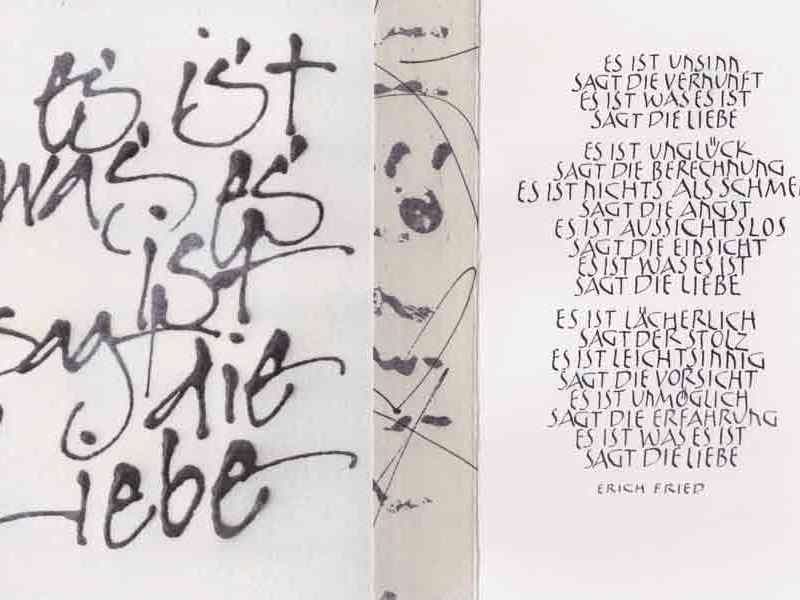 es ist
was es
ist
sagt die
Liebe
ES IST UNSINN
SAGT DIE VERNUNFT
ES IST WAS ES IST
SAGT DIE LIEBE
ES IST UNGLÜCK
SAGT DIE BERECHNUNG
ES IST NICHTS ALS SCHME
SAGT DIE ANGST
ES IST AUSSICHTSLOS
SAGT DIE EINSICHT
ES IST WAS ES IST
SAGT DIE LIEBE
ES IST LÄCHERLICH
SAGT DER STOLZ
ES IST LEICHTSINNIG
SAGT DIE VORSICHT
ES IST UNMÖGLICH
SAGT DIE ERFAHRUNG
ES IST WAS ES IST
SAGT DIE LIEBE
ERICH FRIED